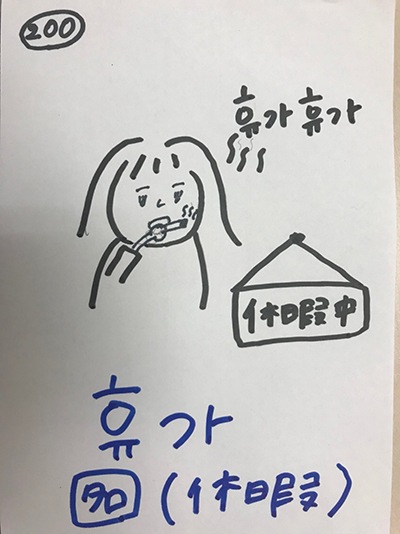 200
휴가 휴가
休暇中
휴가
名 (休暇)